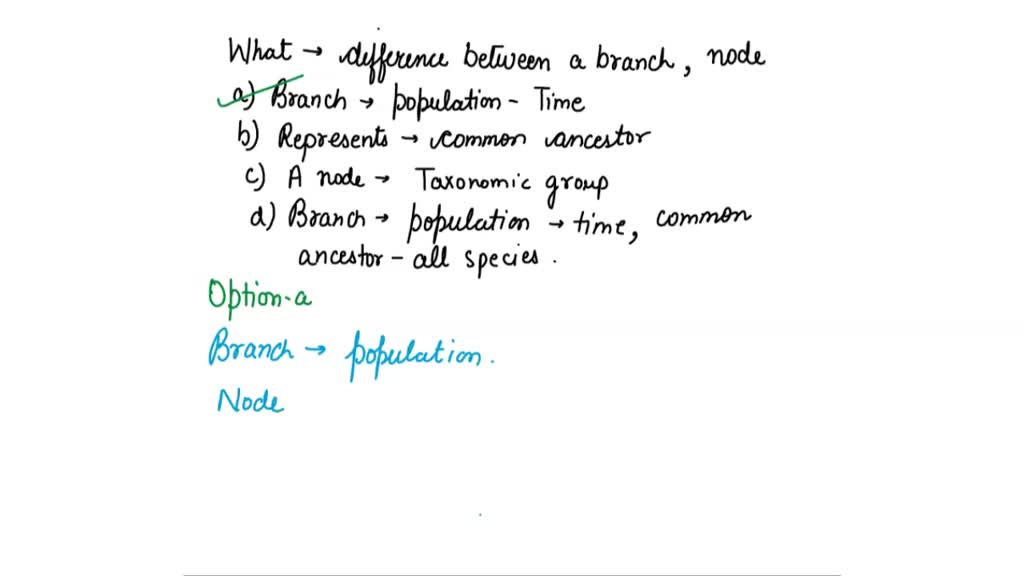 What → difference between a branch, node
a) Branch → population - Time
b) Represents → common ancestor
c) A node → Taxonomic group
d) Branch → population → time, common
ancestor - all species.
Option-a
Branch → population.
Node